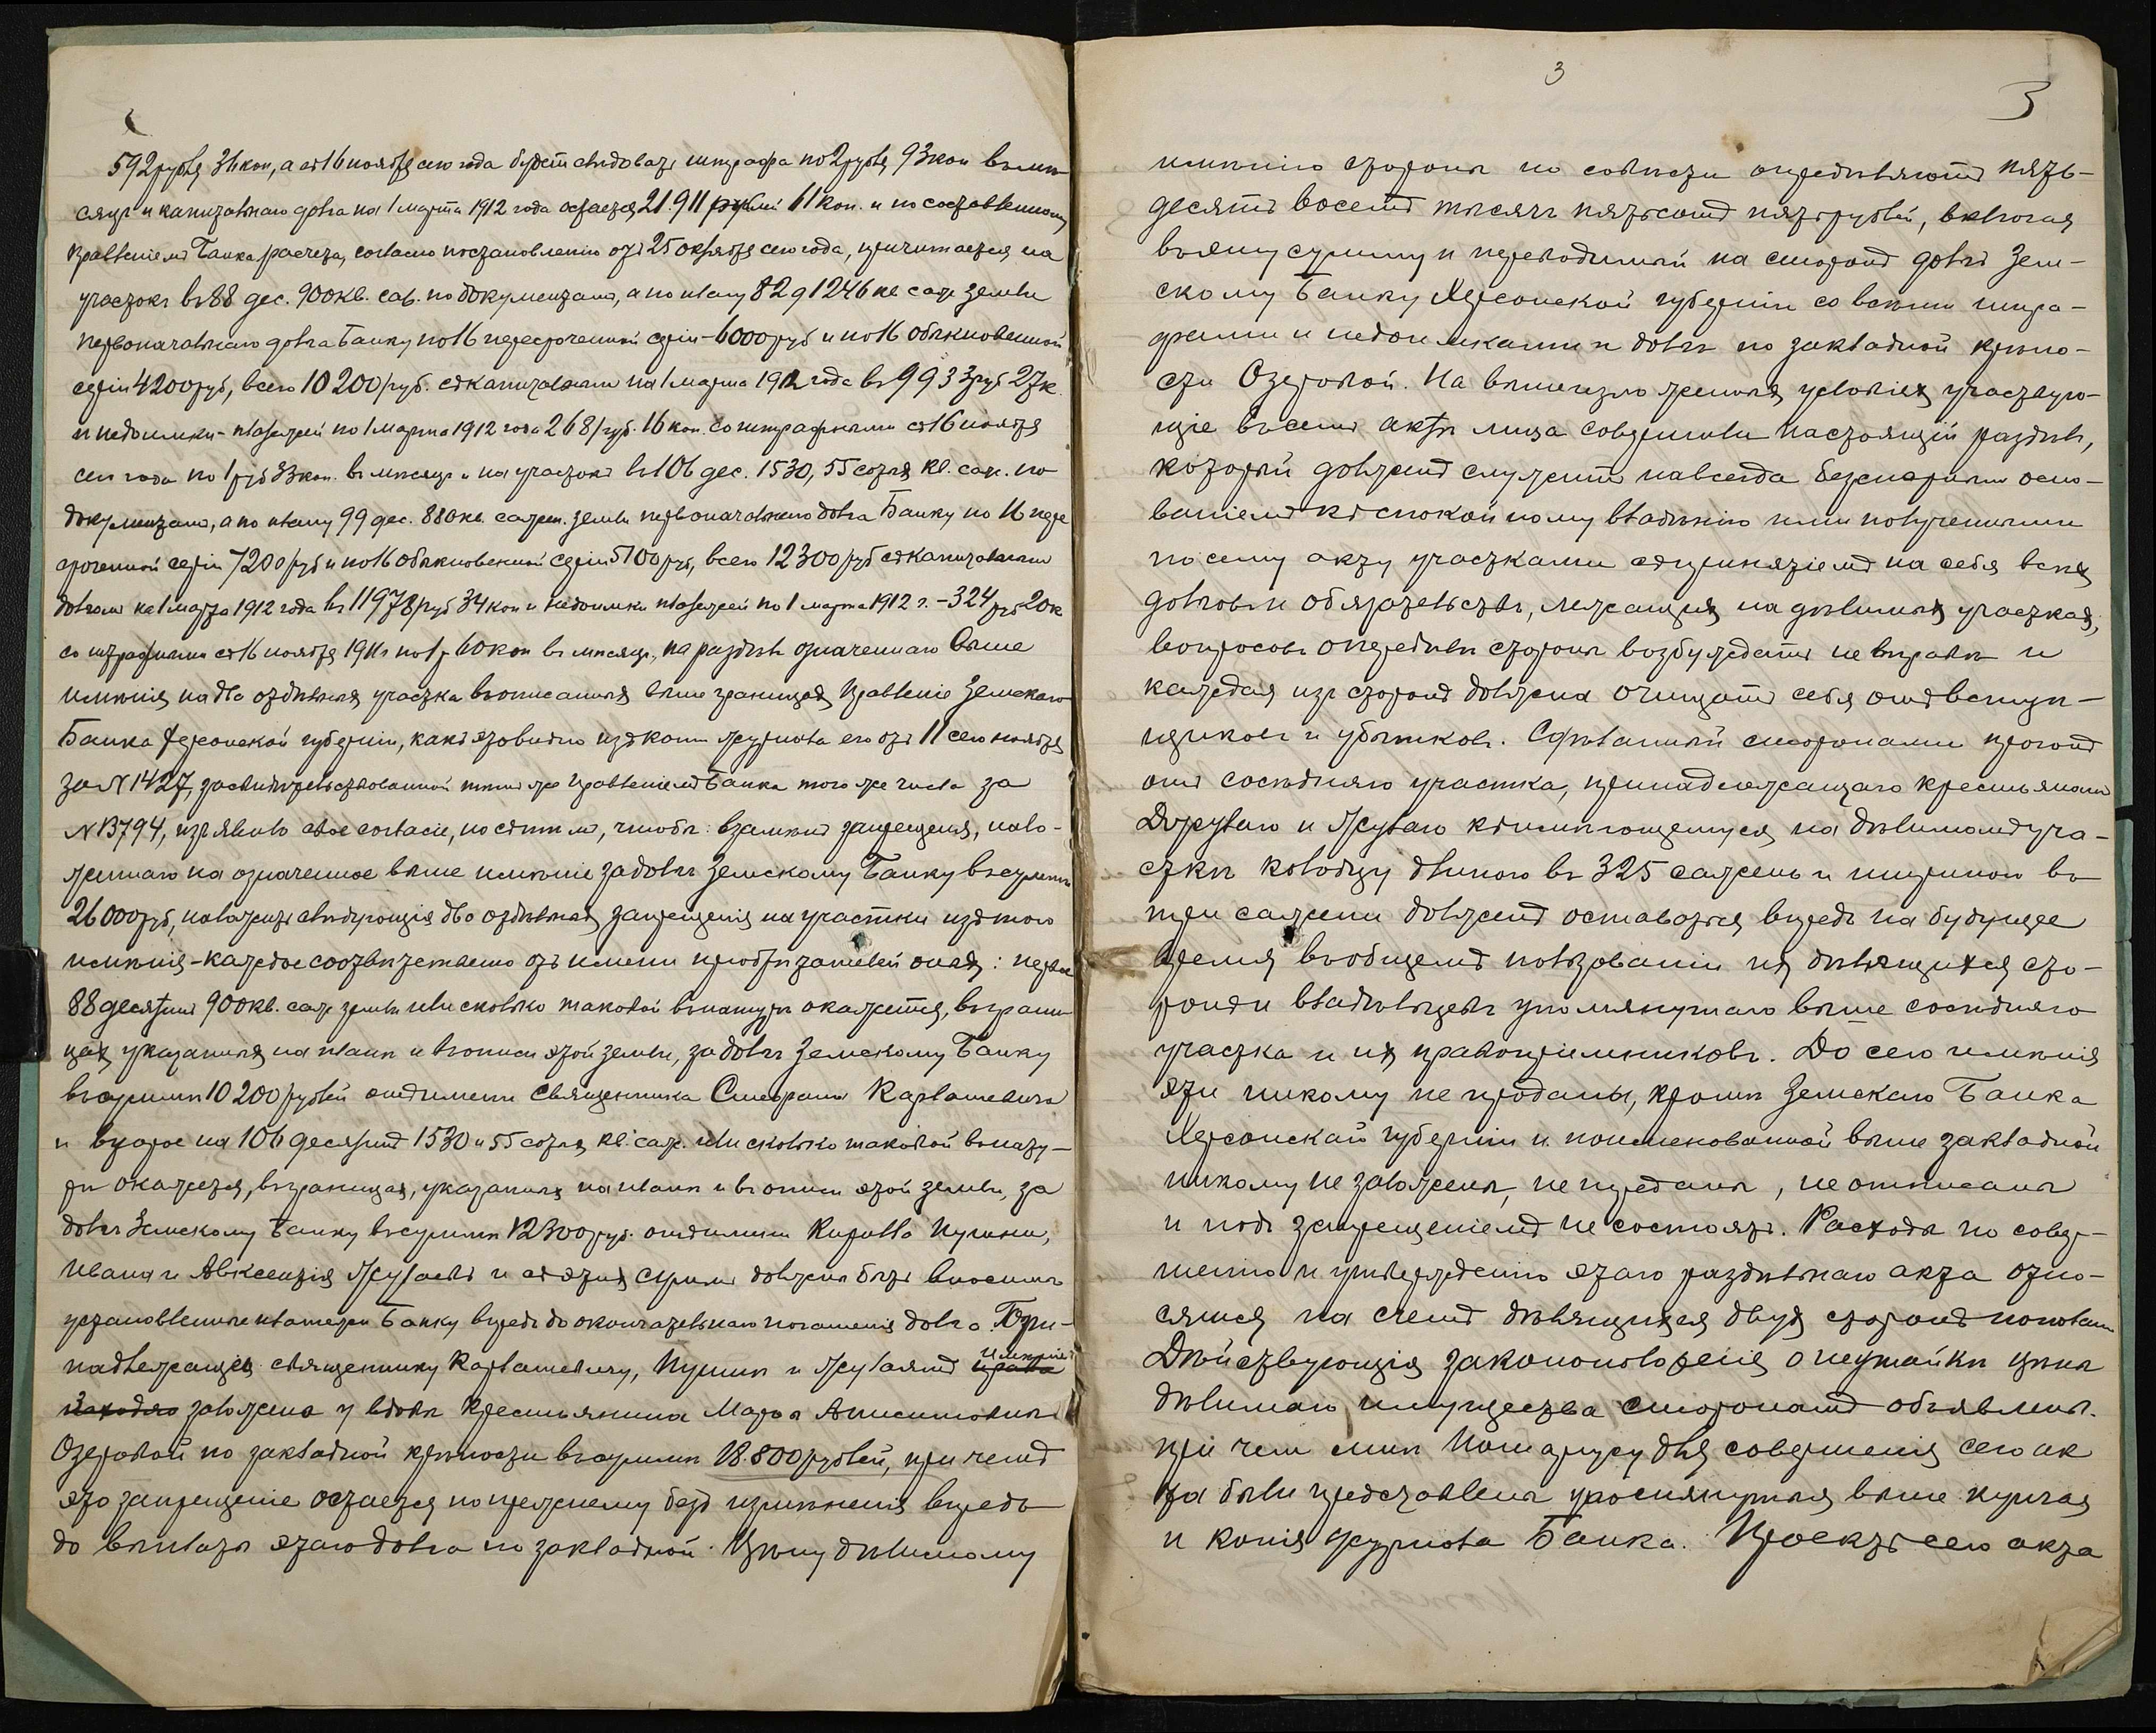 592 рубля 36 коп., а съ 16 ноября сего года будетъ слѣдовать штрафа по 2 рубля 93 коп въ мѣ-
сяцъ и капитальнаго долга на 1 марта 1912 года остается 21.911 рублей 61 коп. и по составленному
Правленіемъ Банка расчета, согласно постановленію отъ 25 октября сего года, причитается на
участокъ въ 88 дес. 900 кв. саж. по документамъ, а по плану 82 д 1246 кв саж земли
первоначальнаго долга Банку по 16 пересроченной серіи - 6000 руб и по 16 обыкновенной
серіи 4200 руб, всего 10200 руб. съ капитальнымъ на 1 марта 1912 года въ 9933 руб 27 к.
и недоимки - платежей по 1 марта 1912 года 268 руб. 16 коп. со штрафными съ 16 ноября
сего года по 1 руб 33 коп. въ мѣсяцъ и на участокъ въ 106 дес. 1530,55 сотыхъ кв. саж. по
документамъ, а по плану 99 дес. 880 кв. сажен. земли первоначальнаго долга Банку по 16 пере
сроченной серіи 7200 руб и по 16 обыкновенной серіи 5100 руб, всего 12300 руб съ капитальнымъ
долгомъ на 1 марта 1912 года въ 11978 руб 34 коп и недоимки платежей по 1 марта 1912 г. - 324 руб 20 к
со штрафными съ 16 ноября 1911 г по 1 р 60 коп въ мѣсяцъ, на раздѣлъ означеннаго выше
имѣнія на два отдѣльныя участка въ описанныхъ выше границахъ Правленіе Земскаго
Банка Херсонской губерніи, какъ это видно изъ копіи журнала его отъ 11 сего ноября
за № 1427, засвидѣтельствованной тѣмъ же Правленіемъ Банка того же числа за
№ 13794, изъявило свое согласіе, но съ тѣмъ, чтобы взамѣнъ запрещенія, нало-
женнаго на означенное выше имѣніе за долгъ Земскому Банку въ суммѣ
26000 руб, наложить слѣдующія два отдѣльныхъ запрещенія на участки изъ того
имѣнія - каждое соотвѣтственно отъ имени пріобрѣтателей оныхъ: первое
88 десятинъ 900 кв. саж земли или сколько таковой въ натурѣ окажется, въ грани
цахъ, указанныхъ на планѣ и въ описи этой земли, за долгъ Земскому Банку
въ суммѣ 10200 рублей отъ имени Священника Карташевича
и второе на 106 десятинъ 1530 и 55 сотыхъ кв. саж. или сколько таковой въ нату-
рѣ окажется, въ границахъ, указанныхъ на планѣ и въ описи этой земли, за
долгъ Земскому Банку въ суммѣ 12300 руб. отъ имени Кирилла
Ивана и Авксентія и съ этихъ суммъ должны быть вносимы
установленные платежи Банку впредь до окончательнаго погашенія долга. При-
надлежащія священнику Карташевичу, и имѣніе
заложено у вдовы крестьянина Марѳы Анисимовны
Озеровой по закладной крѣпости въ суммѣ 18.800 рублей, при чемъ
это запрещеніе остается по прежнему безъ измѣненія впредь
до выплаты этаго долга по закладной. Цѣну дѣлимому
3
3
имѣнію стороны по совѣсти опредѣляютъ пять-
десятъ восемь тысячъ пятьсотъ пять рублей, включая
въ эту сумму и переводимый на сторонъ долгъ Зем-
скому Банку Херсонской губерніи со всѣми штра-
фами и недоимками и долгъ по закладной крѣпо-
сти Озеровой. На вышеизложенныхъ условіяхъ участвую-
щіе въ семъ актѣ лица совершили настоящій раздѣлъ,
который долженъ служить навсегда безспорнымъ осно-
ваніемъ къ спокойному владѣнію ими полученными
по сему акту участками съ принятіемъ на себя всѣхъ
долговъ и обязательствъ, лежащихъ на дѣлимыхъ участкахъ,
вопросовъ о передѣлѣ стороны возбуждать не вправѣ и
каждая изъ сторонъ должна очищать себя отъ вступ-
щиковъ и убытковъ. Сдѣланный сторонами прогонъ
отъ сосѣдняго участка, принадлежащаго крестьянамъ
и къ имѣющемуся на дѣлимомъ уча-
сткѣ колодцу длиною въ 325 сажень и шириною въ
три сажени долженъ оставаться впредь на будущее
время въ общемъ пользованіи ихъ дѣлящихся сто-
ронъ и владѣльцевъ упомянутаго выше сосѣдняго
участка и ихъ правопріемниковъ. До сего имѣнія
эти никому не проданы, кромѣ Земскаго Банка
Херсонской губерніи и поименованной выше закладной
никому не заложены, не преданы, не отписаны
и подъ запрещеніемъ не состоятъ. Расходы по совер-
шенію и утвержденію этаго раздѣльнаго акта отно-
сятся на счетъ дѣлящихся двухъ сторонъ пополамъ
Дѣйствующія законоположенія о неутайкѣ цѣны
дѣлимаго имущества сторонамъ объявлены.
при чемъ мнѣ Нотаріусу для совершенія сего ак
та были представлены упомянутыя выше купчая
и копія журнала Банка. Проектъ сего акта